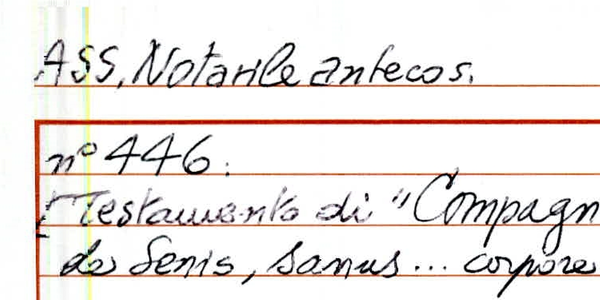 ASS, Notarile antecos.
n° 446:
[Testamento di "Compagn
de Senis, sanus... corpore